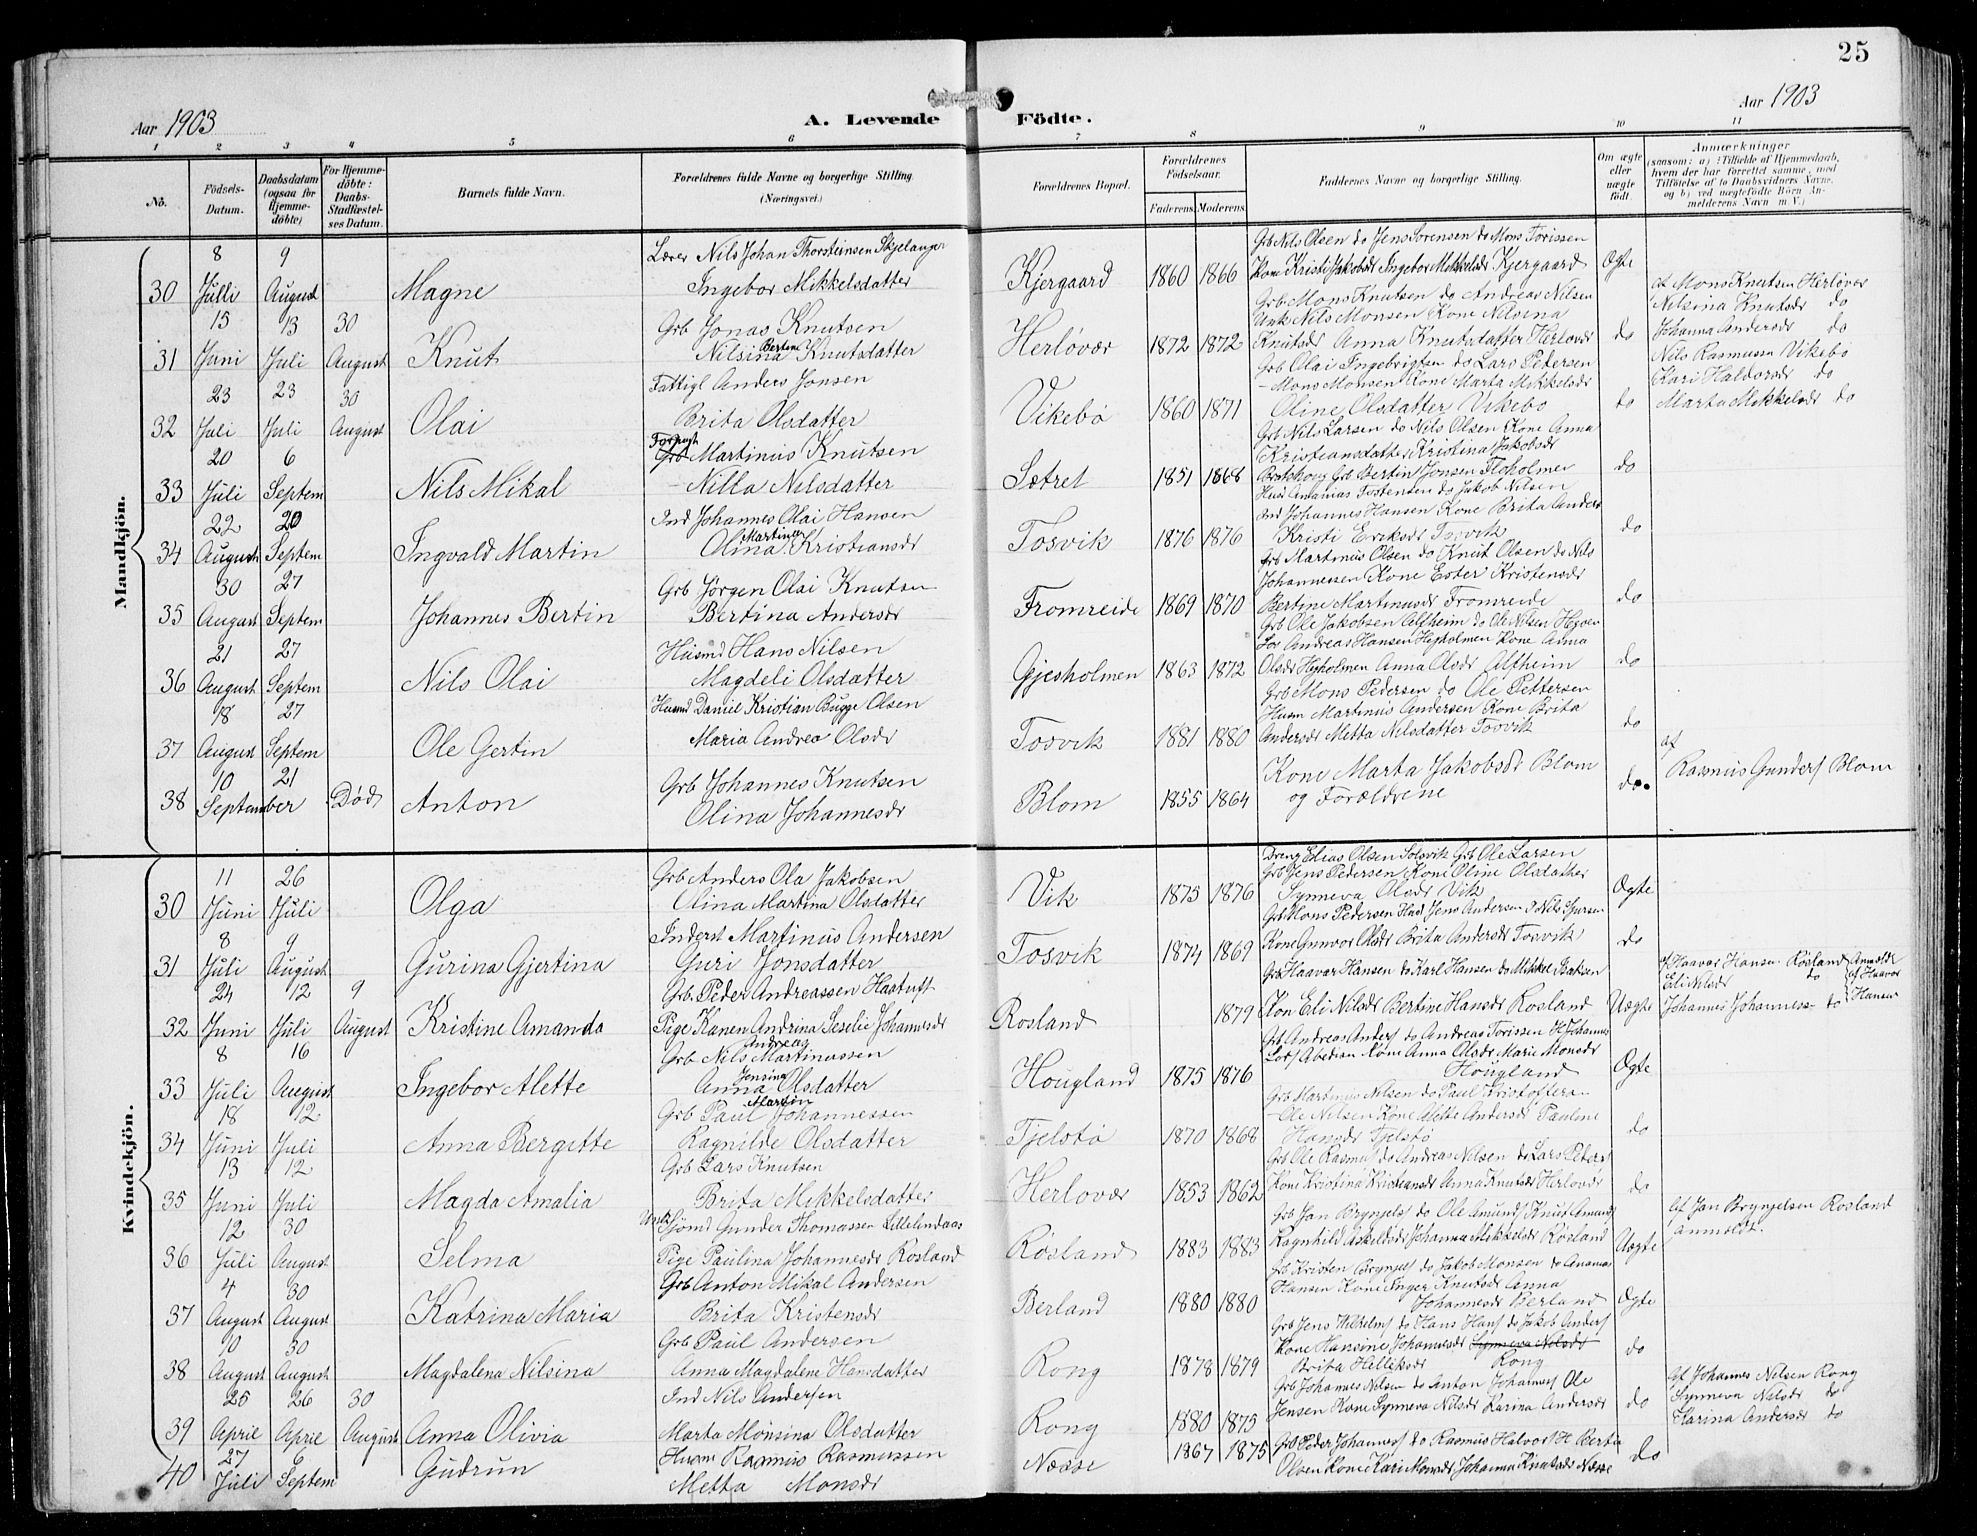 25
Aar 1903
A. Levende Födte.
Aar 1903
1 2 3 4 5 6 7 8 9 10 11
No.
Födsels-Datum.
Daabsdatum (ogsaa for Hjemmedöbte)
For Hjemmedöbte: Daabs-Stadfæstelses Datum.
Barnets fulde Navn.
Forældrenes fulde Navne og borgerlige Stilling. (Næringsvei.)
Forældrenes Bopæl.
Forældrenes Födselsaar.
Faderens. Moderens.
Faddernes Navne og borgerlige Stilling.
Om ægte eller uægte födt.
Anmærkninger
(saasom: a) i Tilfælde af Hjemmedaab, hvem der har forrettet samme, med Tilföielse af to Daabsvidners Navne, og b) ved uægtefödte Börn Anmelderens Navn m. V.)
Mandkjön.
30 8 Julli 9 August Magne
Lærer Nils Johan Thorsteinsen Skjelanger
Ingebor Mikkelsdatter
Kjergaard 1860 1866
Grb Nils Olsen do Jens Sorensen do Mons Torissen
Kone Kristi Jakobsdr Ingebor Mikkelsdr Kjergaard
Ægte
31 15 Juni 13 Juli 30 August Knut
Grb Jonas Knutsen
Nilsina Bertine Knutsdatter
Herløvær 1872 1872
Grb Mons Knutsen do Andreas Nilsen
Unk Nils Monsen Kone Nilsina
Knutsdr Anna Knutsdatter Herlovær
do
af Mons Knutsen Herløvær
Nilsina Knutsdr do
Johanna Andersdr do
32 23 Juli 23 Juli 30 August Olai
Fattigl Anders Jonsen
Brita Olsdatter
Vikebø 1860 1871
Grb Olai Ingebrigtsen do Lars Pedersen
- Mons Monsen Kone Marta Mikkelsdr
Oline Olsdatter Vikebo
do
Nils Rasmussen Vikebø
Kari Haldorsdr do
Marta Mikkelsdr do
33 20 Juli 6 Septem Nils Mikal
Forpagt Grb Martinus Knutsen
- Nilla Nilsdatter
Sætret 1851 1868
Grb Nils Larsen do Nils Olsen Kone Anna
Kristiansdatter Kristina Jakobsdr
Grb Bertin Jonsen Floholmen
do
34 22 August 20 Septem Ingvald Martin
Ind Johannes Olai Hansen
Olina Martinea Kristiansdr
Tosvik 1876 1876
Husd Ananias Tostensen do Jakob Nilsen
Ind Johannes Hansen Kone Brita Anders
Kristi Eriksdr Tosvik
do
35 30 August 27 Septem Johannes Bertin
Grb Jørgen Olai Knutsen
Bertina Andersdr
Fromreide 1869 1870
Grb Martinus Olsen do Knut Olsen do Nils
Johannessen Kone Ester Kristensdr
Bertine Martinusdr Fromreide
do
36 21 August 27 Septem Nils Olai
Husmd Hans Nilsen
Magdeli Olsdatter
Gjesholmen 1863 1872
Grb Ole Jakobsen Alfheim do Ole Nilsen
Los Andreas Hansen Hegholmen Kone Anna
Olsdr Hegholmen Anna Olsdr Alfheim
do
37 18 August 27 Septem Ole Gertin
Husmd Daniel Kristian Bugge Olsen
Maria Andrea Olsdr
Tosvik 1881 1880
Grb Mons Pedersen do Ole Pettersen
Husm Martinus Andersen Kone Brita
Andersdr Metta Nilsdatter Tosvik
do
38 10 September 21 Død Anton
Grb Johannes Knutsen
Olina Johannesdr
Blom 1855 1864
Kone Marta Jakobsdr Blom
og Forældrene
do
af
Rasmus Gunders Blom
Kvindekjön.
30 11 Juni 26 Juli Olga
Grb Anders Ola Jakobsen
Olina Martina Olsdatter
Vik 1875 1876
Dreng Elias Olsen Solsvik Grb Ole Larsen
Grb Jens Pedersen Kone Oline Olsdatter
Synneva Olsdr Vik
Ægte
31 8 Juli 9 August Gurina Gjertina
Inderst Martinus Andersen
Guri Jonsdatter
Tosvik 1874 1869
Grb Mons Pedersen Husd Jens Andersen
Kone Gunvor Olsdr Brita Andersdr Tosvik
do
32 24 Juni 12 Juli 9 August Kristine Amanda
Grb. Peder Andreassen Haatuft
Pige Karen Andrina Seselie Johannesdr
Rosland 1879
Grb Haavar Hansen do Karl Hansen do Mikkel Isaksen
Kon Eli Nilsdr Bertine Hansdr Rosland
Uægte
af Haavar Hansen Røsland
Eli Nilsdr do
Johannes Johanness- do
Anmeldt af Haavar Hansen
33 8 Juli 16 August Ingebor Alette
Grb Nils Andreas Martinussen
Anna Jensina Olsdatter
Hougland 1875 1876
Grb Andreas Anders do Andreas Torissen
Kone Anna Olsdr Marie Monsdr
Hougland
Ægte
34 18 Juni 12 Juli Anna Bergitte
Grb Paul Martin Johannessen
Ragnilde Olsdatter
Tjelstø 1870 1868
Grb Martinus Nilsen do Paul Kristoffersn
- Ole Nilsen Kone Mette Andersdr Pauline
Hansdr Tjelstø
do
35 13 Juni 12 Juli Magda Amalia
Grb Lars Knutsen
Brita Mikkelsdatter
Herlovær 1853 1862
Grb Ole Rasmus do Andreas Nilsen do Lars Peters
Kone Kristina Kristiansdr Anna Knutsdr Herlovær
do
36 12 Juli 30 August Selma
Unk Sjømd Gunder Thomassen Lillelindaas
Pige Paulina Johannesdr Rosland
Røsland 1883 1883
Grb Jan Brynjels do Ole Amund Knut Amund
Ragnhild Askeldsdr Johanna Mikkelsdr Rosland
Uægte
Af Jan Brynjelsen Rosland
anmeldt.
37 4 August 30 August Katrina Maria
Grb Anton Mikal Andersen
Brita Kristensdr
Berland 1880 1880
Grb Kristen Brynjels do Jakob Monsen do Ananias
Hansen Kone Inger Knutsdr Anna
Johannesdr Berland
Ægte
38 10 August 30 August Magdalena Nilsina
Grb Paul Andersen
Anna Magdalene Hansdatter
Rong 1878 1879
Grb Jens Wilhelms do Hans Hans do Jakob Anders
Kone Hansine Johannesdr Synneva Nilsdr
Brita Hilleksdr Rong
do
39 25 April 26 April 30 August Anna Olivia
Ind Nils Andersen
Marta Monsina Olsdatter
Rong 1880 1875
Grb Johannes Nilsen do Anton Johannes Ole
Jensen Kone Synneva Nilsdr Karina Andersdr
do
Af Johannes Nilsen Rong
Synneva Nilsdr do
Karina Andersdr do
40 27 Juli 6 Septem Gudrun
Husm Rasmus Rasmussen
Metta Monsdr
Næsse 1867 1875
Grb Peder Johannes do Rasmus Halvors H Berta
Olsen Kone Kari Monsdr Johanna Knutsdr Næsse
do